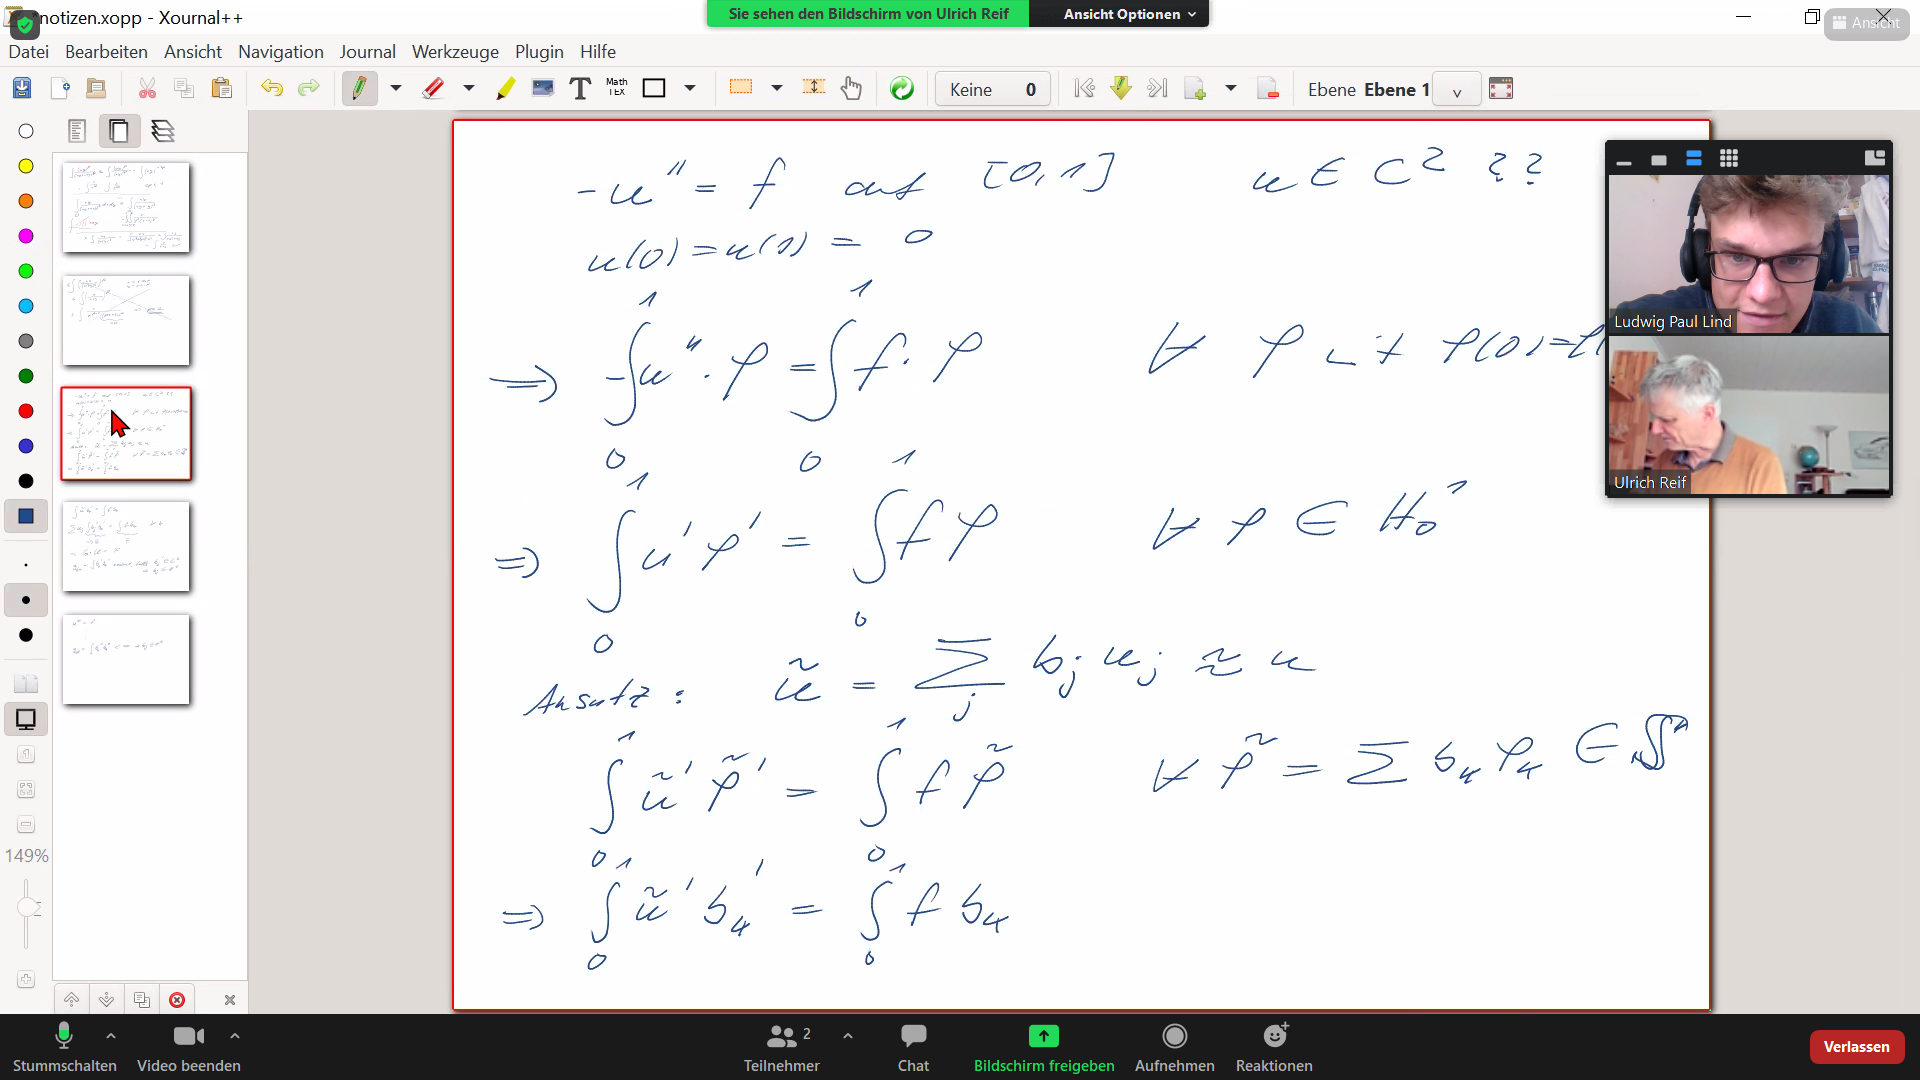 notizen.xopp - Xournal++
Sie sehen den Bildschirm von Ulrich Reif
Ansicht Optionen
Ansicht
Datei Bearbeiten Ansicht Navigation Journal Werkzeuge Plugin Hilfe
Math TEX
Keine 0
Ebene Ebene 1
-u'' = f auf [0,1] u ∈ C² ??
u(0) = u(1) = 0
⇒ -∫₀¹ u''·φ = ∫₀¹ f·φ ∀ φ mit φ(0)=φ(
⇒ ∫₀¹ u'φ' = ∫₀¹ fφ ∀ φ ∈ H₀¹
Ansatz: ũ = Σ_j b_j u_j ≈ u
∫₀¹ ũ' φ̃' = ∫₀¹ f φ̃ ∀ φ̃ = Σ b_k φ_k ∈ 𝕊ⁿ
⇒ ∫₀¹ ũ' b_k' = ∫₀¹ f b_k
Ludwig Paul Lind
Ulrich Reif
149%
Stummschalten
Video beenden
Teilnehmer 2
Chat
Bildschirm freigeben
Aufnehmen
Reaktionen
Verlassen